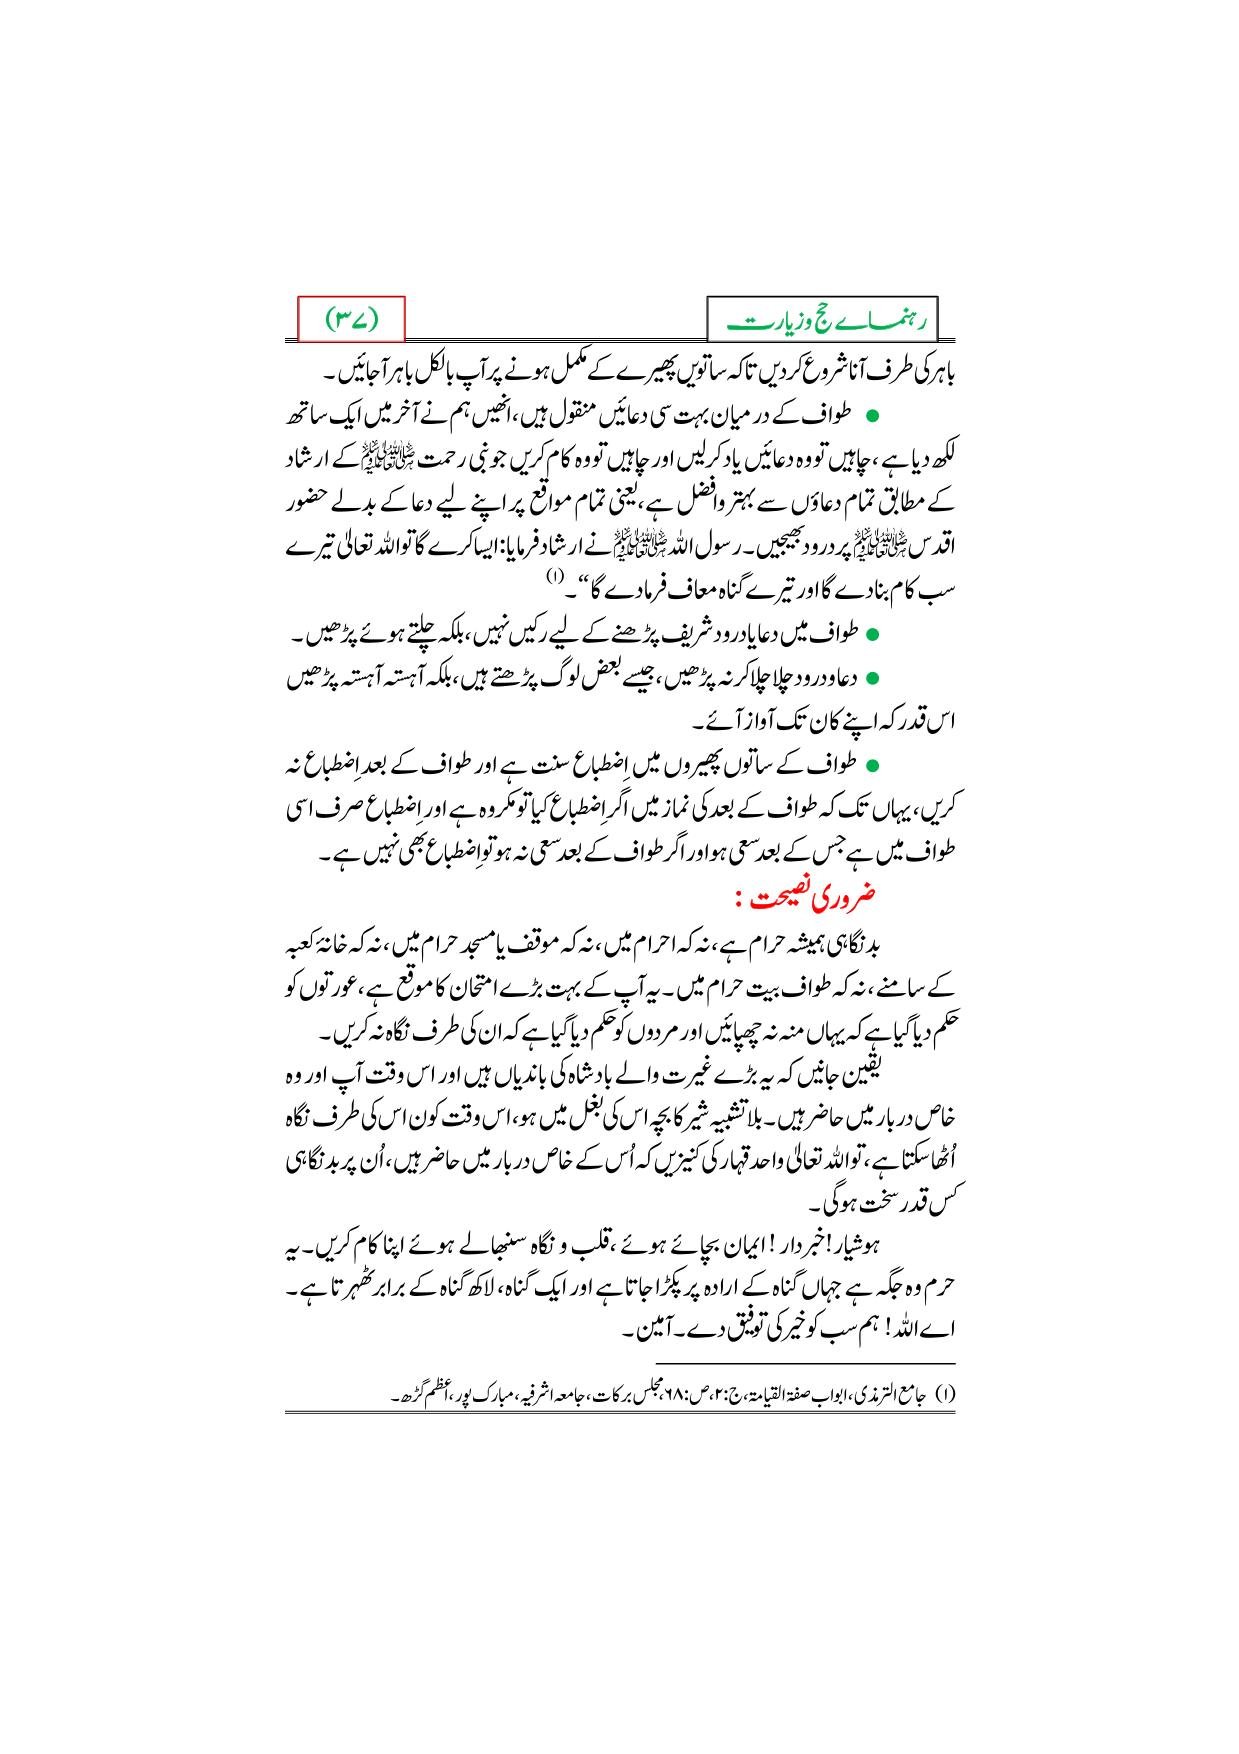 رہنمائے حج و زیارت
(۳۷)
باہر کی طرف آنا شروع کر دیں تاکہ ساتویں پھیرے کے مکمل ہونے پر آپ بالکل باہر آجائیں۔
● طواف کے درمیان بہت سی دعائیں منقول ہیں، انھیں ہم نے آخر میں ایک ساتھ
لکھ دیا ہے، چاہیں تو وہ دعائیں یاد کر لیں اور چاہیں تو وہ کام کریں جو نبی رحمت ﷺ کے ارشاد
کے مطابق تمام دعاؤں سے بہتر و افضل ہے، یعنی تمام مواقع پر اپنے لیے دعا کے بدلے حضور
اقدس ﷺ پر درود بھیجیں۔ رسول اللہ ﷺ نے ارشاد فرمایا: ایسا کرے گا تو اللہ تعالیٰ تیرے
سب کام بنا دے گا اور تیرے گناہ معاف فرما دے گا“۔ (۱)
● طواف میں دعا یا درود شریف پڑھنے کے لیے رکیں نہیں، بلکہ چلتے ہوئے پڑھیں۔
● دعا و درود چلا چلا کر نہ پڑھیں، جیسے بعض لوگ پڑھتے ہیں، بلکہ آہستہ آہستہ پڑھیں
اس قدر کہ اپنے کان تک آواز آئے۔
● طواف کے ساتوں پھیروں میں اِضطباع سنت ہے اور طواف کے بعد اِضطباع نہ
کریں، یہاں تک کہ طواف کے بعد کی نماز میں اگر اِضطباع کیا تو مکروہ ہے اور اِضطباع صرف اسی
طواف میں ہے جس کے بعد سعی ہو اور اگر طواف کے بعد سعی نہ ہو تو اِضطباع بھی نہیں ہے۔
ضروری نصیحت :
بدنگاہی ہمیشہ حرام ہے، نہ کہ احرام میں، نہ کہ موقف یا مسجد حرام میں، نہ کہ خانۂ کعبہ
کے سامنے، نہ کہ طواف بیت حرام میں۔ یہ آپ کے بہت بڑے امتحان کا موقع ہے، عورتوں کو
حکم دیا گیا ہے کہ یہاں منہ نہ چھپائیں اور مردوں کو حکم دیا گیا ہے کہ ان کی طرف نگاہ نہ کریں۔
یقین جانیں کہ یہ بڑے غیرت والے بادشاہ کی باندیاں ہیں اور اس وقت آپ اور وہ
خاص دربار میں حاضر ہیں۔ بلا تشبیہ شیر کا بچہ اس کی بغل میں ہو، اس وقت کون اس کی طرف نگاہ
اُٹھا سکتا ہے، تو اللہ تعالیٰ واحد قہار کی کنیزیں کہ اُس کے خاص دربار میں حاضر ہیں، اُن پر بدنگاہی
کس قدر سخت ہوگی۔
ہوشیار! خبردار! ایمان بچائے ہوئے، قلب و نگاہ سنبھالے ہوئے اپنا کام کریں۔ یہ
حرم وہ جگہ ہے جہاں گناہ کے ارادہ پر پکڑا جاتا ہے اور ایک گناہ، لاکھ گناہ کے برابر ٹھہرتا ہے۔
اے اللہ! ہم سب کو خیر کی توفیق دے۔ آمین۔
(۱) جامع الترمذی، ابواب صفۃ القیامۃ، ج:۲، ص:۶۸، مجلس برکات، جامعہ اشرفیہ، مبارک پور، اعظم گڑھ۔